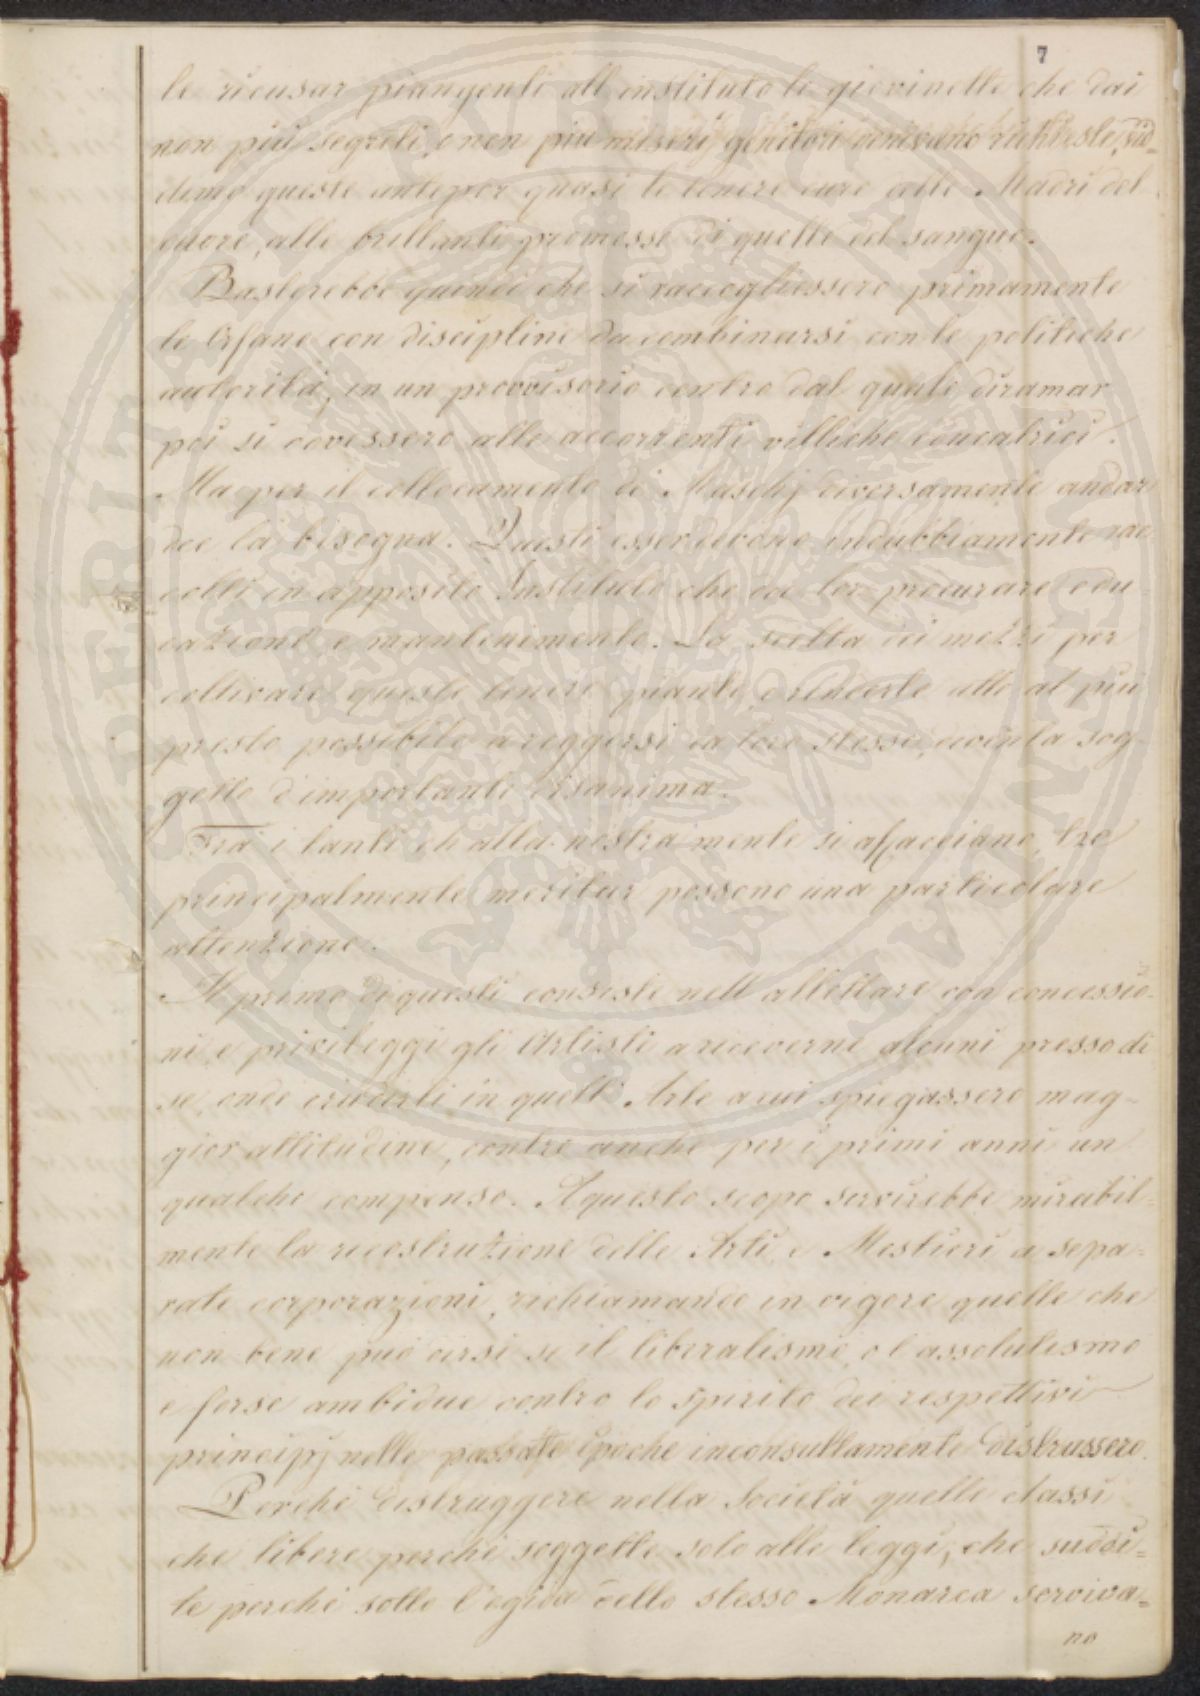 7
le ricusar piangenti all'instituto le giovinette che dai
non più segreti, e non più miseri genitori venivano richieste, vid=
dimo queste antepor quasi le tenere cure delle Madri del
cuore, alle brillanti promesse di quelle del sangue.
Basterebbe quindi che si raccogliessero primamente
le Orfane con discipline da combinarsi con le politiche
autorità, in un provvisorio centro dal quale diramar
poi si dovessero alle accorrenti villiche educatrici.
Ma per il collocamento di Maschj diversamente andar
dee la bisogna. Questi esser devono indubbiamente rac
colti in apposito Instituto che dee lor procurare edu
cazione e mantenimento. La scelta dei mezzi per
coltivare queste tenere piante, e renderle atte al più
presto possibile a reggersi da loro stesse, diventa sog
getto d'importante disamina.
Fra i tanti ch'alla nostra mente si affacciano, tre
principalmente meritar possono una particolare
attenzione.
Il primo di questi consiste nell'allettare con concessio-
ni, e privileggi gli Artisti a riceverne alcuni presso di
se, onde erudirli in quell'Arte a cui spiegassero mag-
gior attitudine, contro anche per i primi anni un
qualche compenso. A questo scopo servirebbe mirabil-
mente la ricostruzione delle Arti, e Mestieri a sepa=
rate corporazioni, richiamando in vigore quelle che
non bene può dirsi se il liberalismo, o l'assolutismo
e forse ambidue contro lo spirito dei respettivi
principj nelle passate Epoche inconsultamente distrussero.
Perchè distruggere nella Società quelle classi
che libere perchè soggette solo alle leggi, che suddi=
te perchè sotto l'egida dello stesso Monarca serviva=
no
PROSPERITATI PVBLICAE AVGENDAE